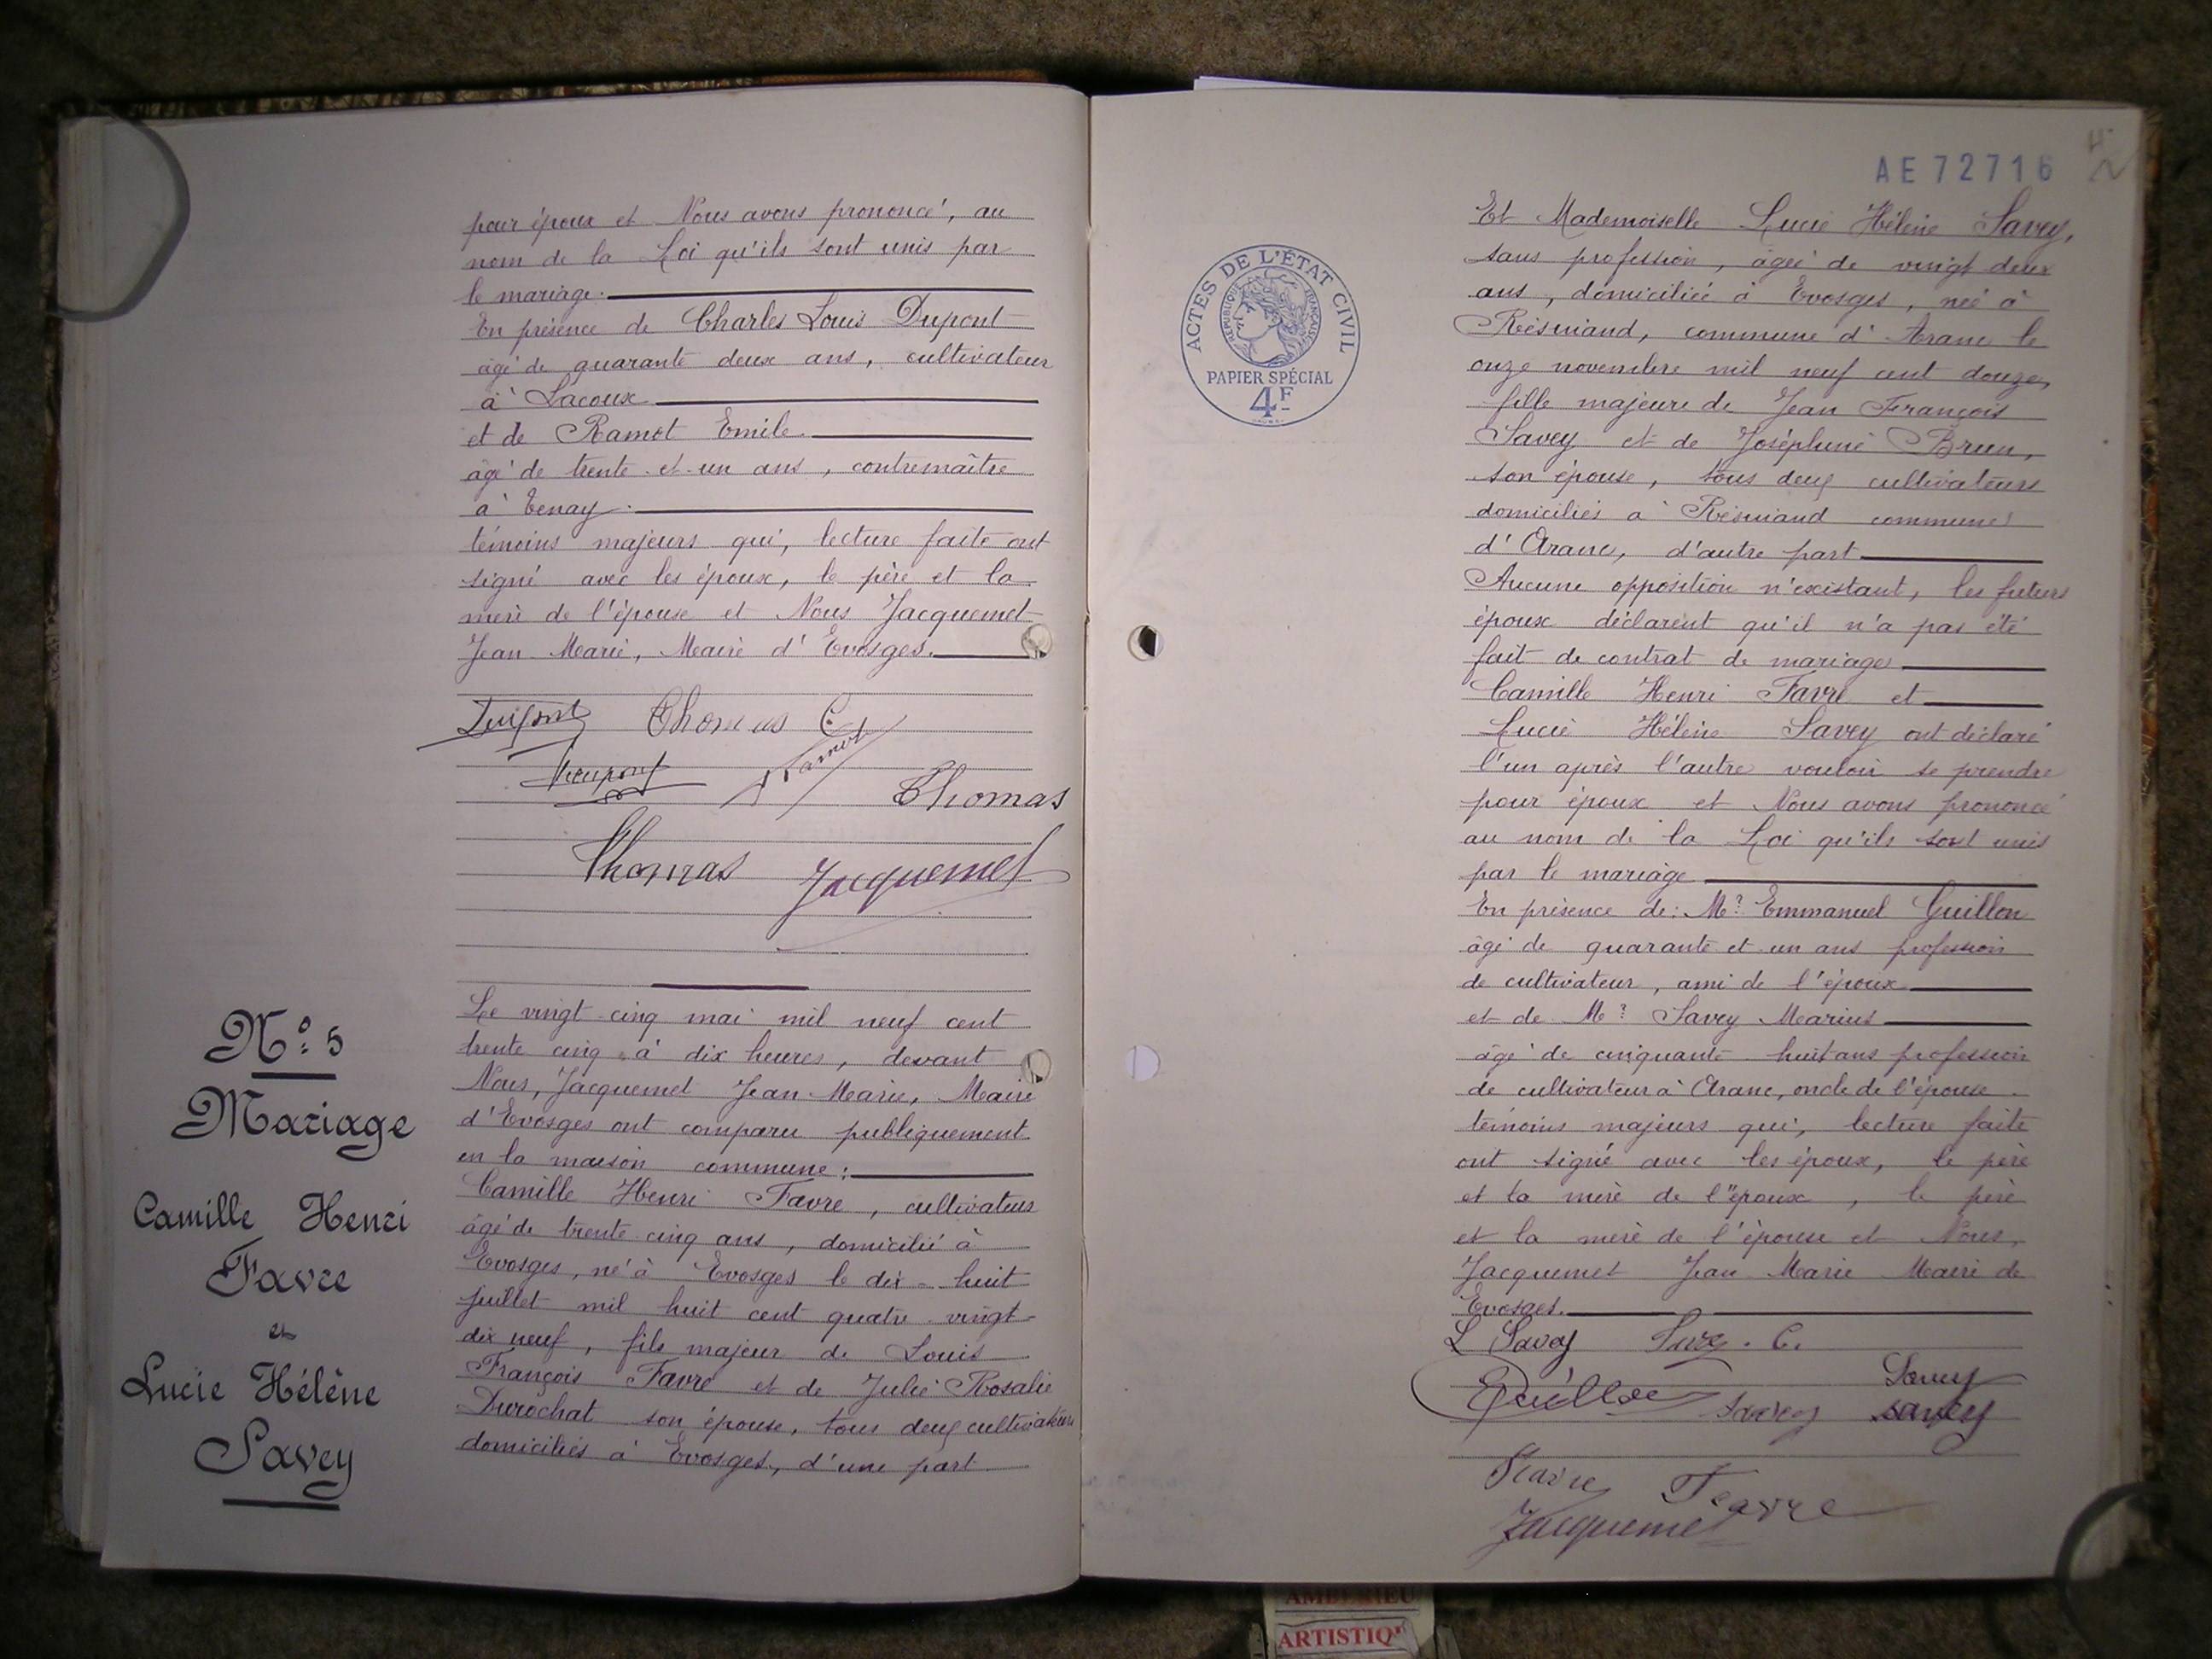 pour époux et Nous avons prononcé, au
nom de la Loi qu'ils sont unis par
le mariage.
En présence de Charles Louis Dupont
âgé de quarante deux ans, cultivateur
à Lacoux
et de Ramet Emile.
âgé de trente et un ans, contremaître
à Tenay.
témoins majeurs qui, lecture faite ont
signé avec les époux, le père et la
mère de l'épouse et Nous Jacquemet
Jean Marie, Maire d'Evosges.
Dupont Thomas C.
Dupont Ramet
Thomas
Thomas Jacquemet
N° 5
Mariage
Camille Henri
Favre
et
Lucie Hélène
Savey
Le vingt-cinq mai mil neuf cent
trente cinq à dix heures, devant
Nous, Jacquemet Jean-Marie, Maire
d'Evosges ont comparu publiquement
en la maison commune :
Camille Henri Favre, cultivateur
âgé de trente cinq ans, domicilié à
Evosges, né à Evosges le dix-huit
juillet mil huit cent quatre-vingt-
dix neuf, fils majeur de Louis
François Favre et de Julie Rosalie
Durochat son épouse, tous deux cultivateurs
domiciliés à Evosges, d'une part
AE72716
ACTES DE L'ÉTAT CIVIL
RÉPUBLIQUE FRANÇAISE
PAPIER SPÉCIAL
4F
Et Mademoiselle Lucie Hélène Savey,
sans profession, âgée de vingt deux
ans, domiciliée à Evosges, née à
Résinand, commune d'Aranc le
onze novembre mil neuf cent douze,
fille majeure de Jean François
Savey et de Joséphine Brun,
son épouse, tous deux cultivateurs
domiciliés à Résinand commune
d'Aranc, d'autre part
Aucune opposition n'existant, les futurs
époux déclarent qu'il n'a pas été
fait de contrat de mariage
Camille Henri Favre et
Lucie Hélène Savey ont déclaré
l'un après l'autre vouloir se prendre
pour époux et Nous avons prononcé
au nom de la Loi qu'ils sont unis
par le mariage
En présence de: Mr Emmanuel Guillon
âgé de quarante et un ans profession
de cultivateur, ami de l'époux
et de Mr Savey Marius
âgé de cinquante-huit ans profession
de cultivateur à Aranc, oncle de l'épouse
témoins majeurs qui, lecture faite
ont signé avec les époux, le père
et la mère de l'époux, le père
et la mère de l'épouse et Nous,
Jacquemet Jean Marie Maire de
Evosges.
L Savey
Guillon Savey
Savey Savey
Favre Favre
Jacquemet
AMBERIEU
ARTISTIQ